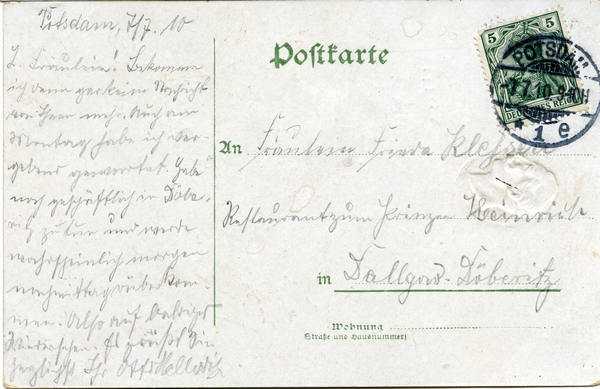 Potsdam, 7/7. 10
L. Fräulein! Bekomme
ich denn gar keine Nachricht
von Ihnen mehr. Auch am
Montag habe ich ver-
gebens gewartet. Habe
noch geschäftlich in Döbe-
ritz zu tun und werde
wahrscheinlich morgen
nachmittag rüber kom-
men. Also auf baldiges
Wiedersehen. Es grüßt Sie
herzlichst Ihr
Postkarte
5 5
POTSDAM
7.7.10
DEUTSCHES REICH
* 1 e
An Fräulein Frieda
Restaurant zum Prinzen Heinrich
in Dallgow-Döberitz
Wohnung
(Straße und Hausnummer)